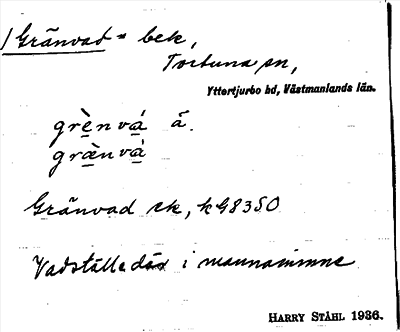 / Gränvad = bek,
Tortuna sn,
Yttertjurbo hd, Västmanlands län.
grènvá å.
græ̀nvá
Gränvad ek, kG8350
Vadställe där i mannaminne
HARRY STÅHL 1936.